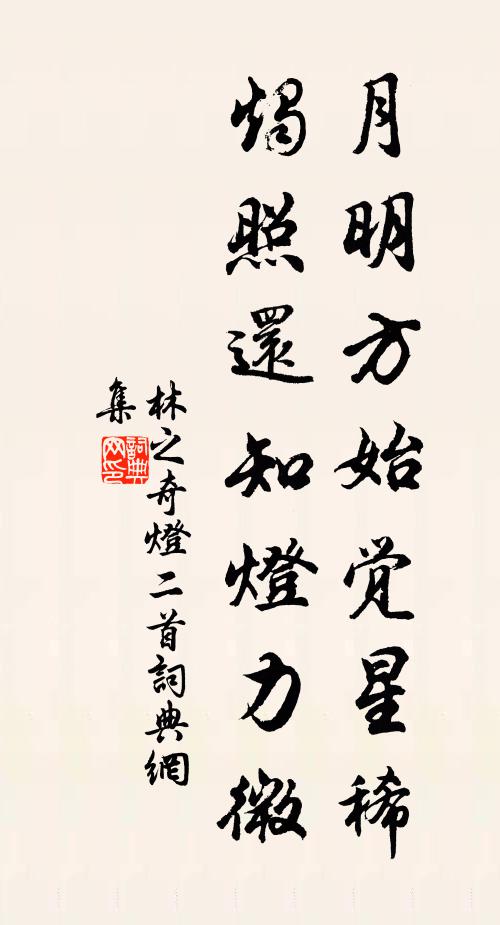 月明方始觉星稀
烛照還知燈力微
林之奇燈二首詞典網
集
詞典网印